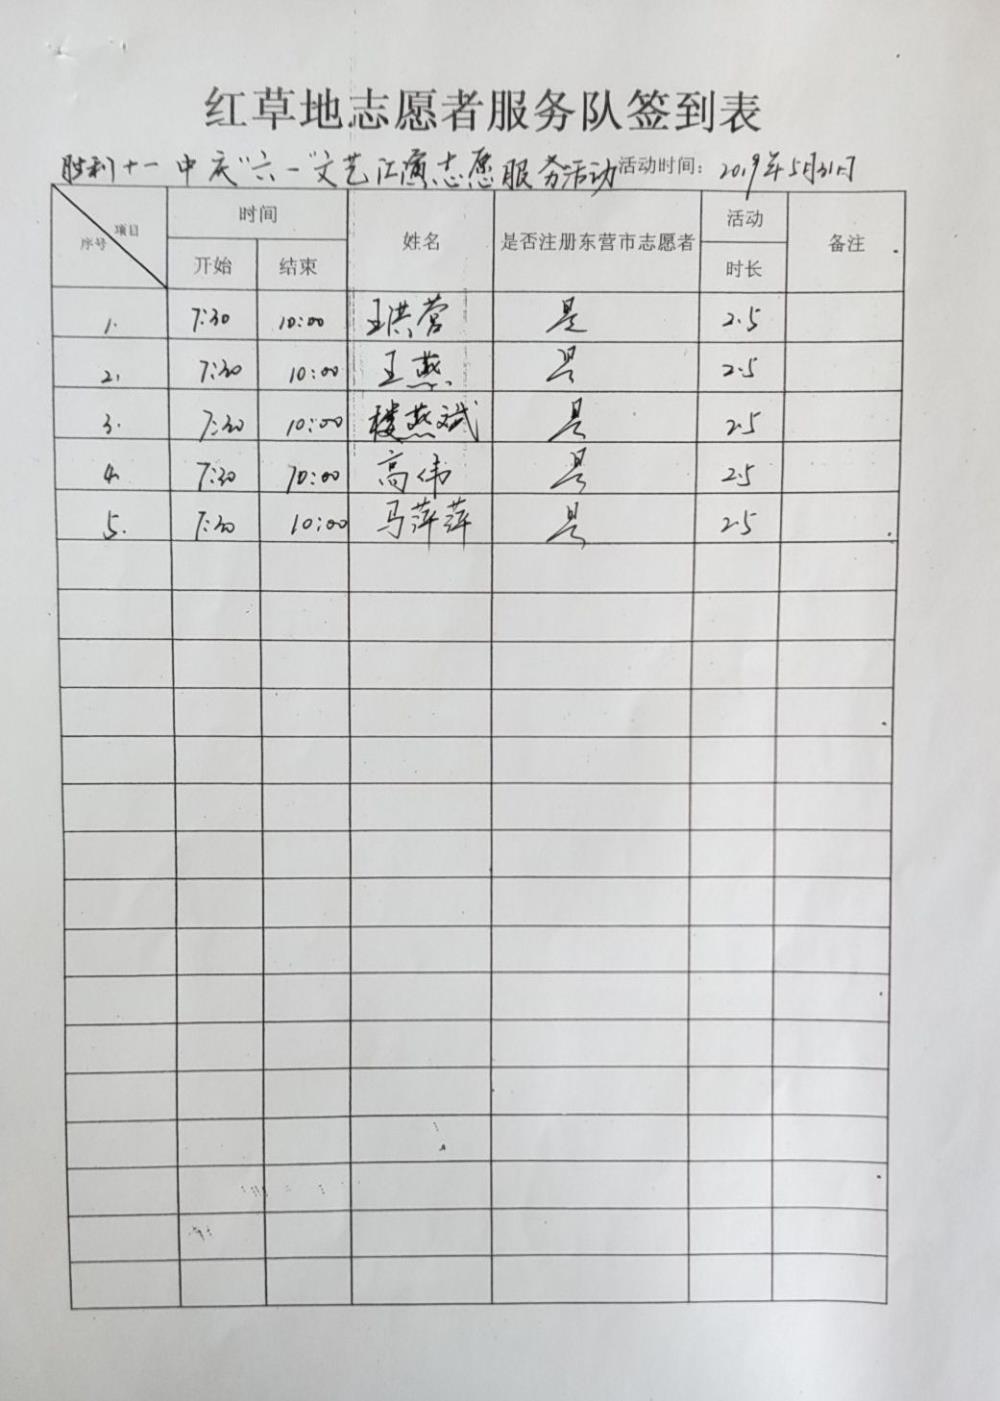 红草地志愿者服务队签到表
胜利十一中庆“六一”文艺汇演志愿服务活动 活动时间：2019年5月31日
项目 序号 时间 姓名 是否注册东营市志愿者 活动 备注
开始 结束 时长
1. 7:30 10:00 王洪营 是 2.5
2. 7:30 10:00 王燕 是 2.5
3. 7:30 10:00 楼燕斌 是 2.5
4. 7:30 10:00 高伟 是 2.5
5. 7:30 10:00 马萍萍 是 2.5